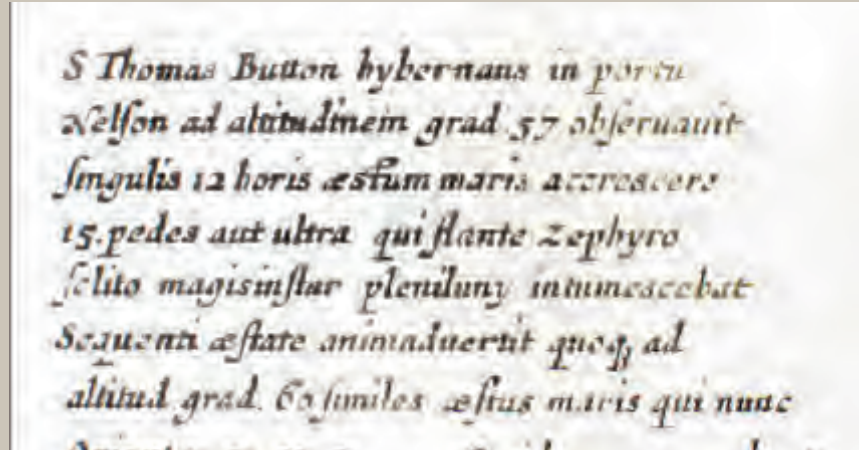 S Thomas Button hybernans in portu
Nelſon ad altitudinem grad 57 obſeruauit
ſingulis 12 horis æstum maris accrescere
15. pedes aut ultra qui flante Zephyro
ſolito magis inſtar plenilunij intumescebat
Sequenti æſtate animaduertit quoq, ad
altitud grad. 60 ſimiles æſtus maris qui nunc